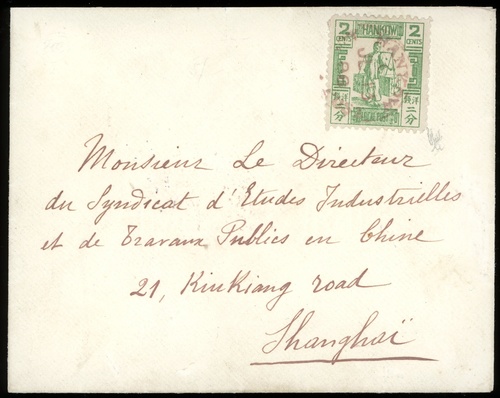 2 HANKOW 2
CENTS CENTS
洋 二 分
Monsieur Le Directeur
du Syndicat d'Etudes Industrielles
et de Travaux Publics en Chine
21, KiuKiang road
Shanghaï